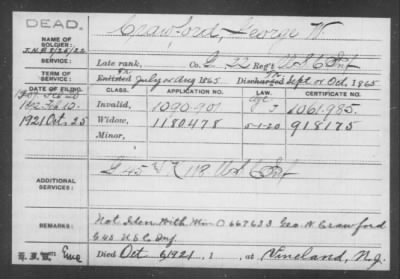 DEAD.
Crawford, George W.
NAME OF
SOLDIER:
SERVICE:
Late rank, Co. G 22 Reg't U.S.C. Inf
TERM OF
SERVICE:
Enlisted July or Aug 1865
Discharged Sept. or Oct., 1865
DATE OF FILING.
CLASS.
APPLICATION NO.
LAW.
CERTIFICATE NO.
Invalid, 1090.901 1061.985.
1921 Oct. 25 Widow, 1180478 5-1-20 918175
Minor,
ADDITIONAL
SERVICES:
G 45 119 U.S.C. Inf
REMARKS:
Not Iden With Wm O 667633 Geo W. Crawford
G 45 U.S.C. Inf.
Died Oct 6, 1921, at Vineland, N.J.